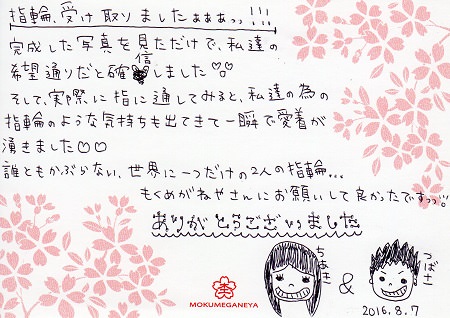 指輪、受け取りましたぁぁぁっっ!!!
完成した写真を見ただけで、私達の
希望通りだと確信しました♡♡
そして、実際に指に通してみると、私達の為の
指輪のような気持ちも出てきて一瞬で愛着が
湧きました♡♡
誰ともかぶらない、世界に一つだけの2人の指輪...
もくめがねやさんにお願いして良かったですっっ!!
ありがとうございました
ちあき & つばさ
2016.8.7
MOKUMEGANEYA